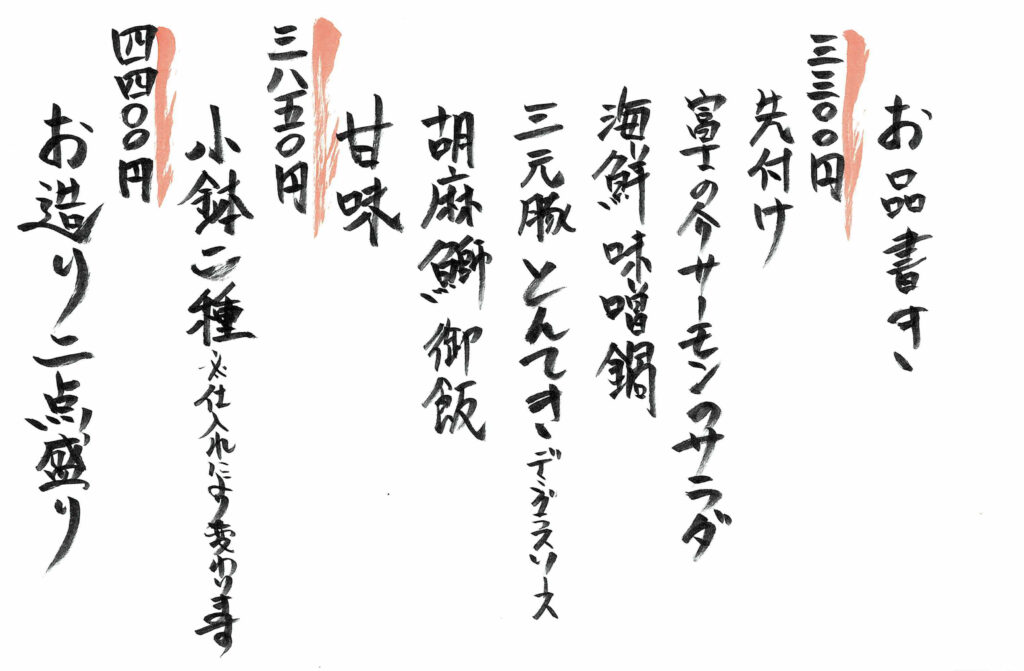 お品書き
三三〇〇円
先付け
富士の介サーモンのサラダ
海鮮 味噌鍋
三元豚 とんてき デミグラスソース
胡麻鰤 御飯
甘味
三八五〇円
小鉢二種 ※仕入れにより変わります
四四〇〇円
お造り二点盛り